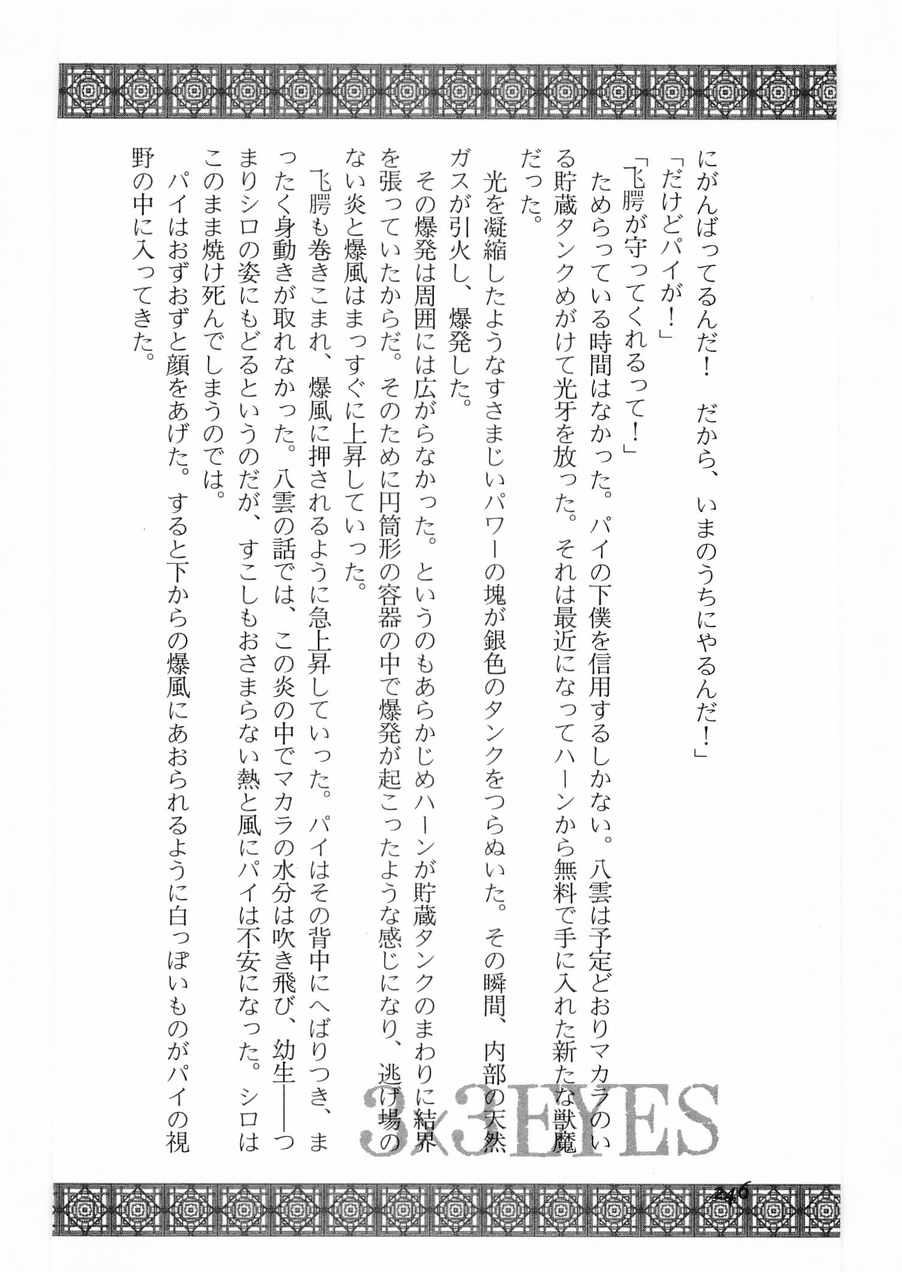 にがんばってるんだ！　だから、いまのうちにやるんだ！」
「だけどパイが！」
「飞腭が守ってくれるって！」
　ためらっている時間はなかった。パイの下僕を信用するしかない。八雲は予定どおりマカラのい
る貯蔵タンクめがけて光牙を放った。それは最近になってハーンから無料で手に入れた新たな獣魔
だった。
　光を凝縮したようなすさまじいパワーの塊が銀色のタンクをつらぬいた。その瞬間、内部の天然
ガスが引火し、爆発した。
　その爆発は周囲には広がらなかった。というのもあらかじめハーンが貯蔵タンクのまわりに結界
を張っていたからだ。そのために円筒形の容器の中で爆発が起こったような感じになり、逃げ場の
ない炎と爆風はまっすぐに上昇していった。
　飞腭も巻きこまれ、爆風に押されるように急上昇していった。パイはその背中にへばりつき、ま
ったく身動きが取れなかった。八雲の話では、この炎の中でマカラの水分は吹き飛び、幼生――つ
まりシロの姿にもどるというのだが、すこしもおさまらない熱と風にパイは不安になった。シロは
このまま焼け死んでしまうのでは。
　パイはおずおずと顔をあげた。すると下からの爆風にあおられるように白っぽいものがパイの視
野の中に入ってきた。
3×3EYES
246